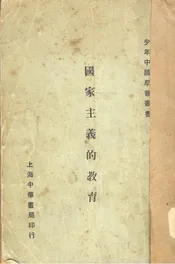 少年中國學會叢書
國家主義的教育
上海中華書局印行